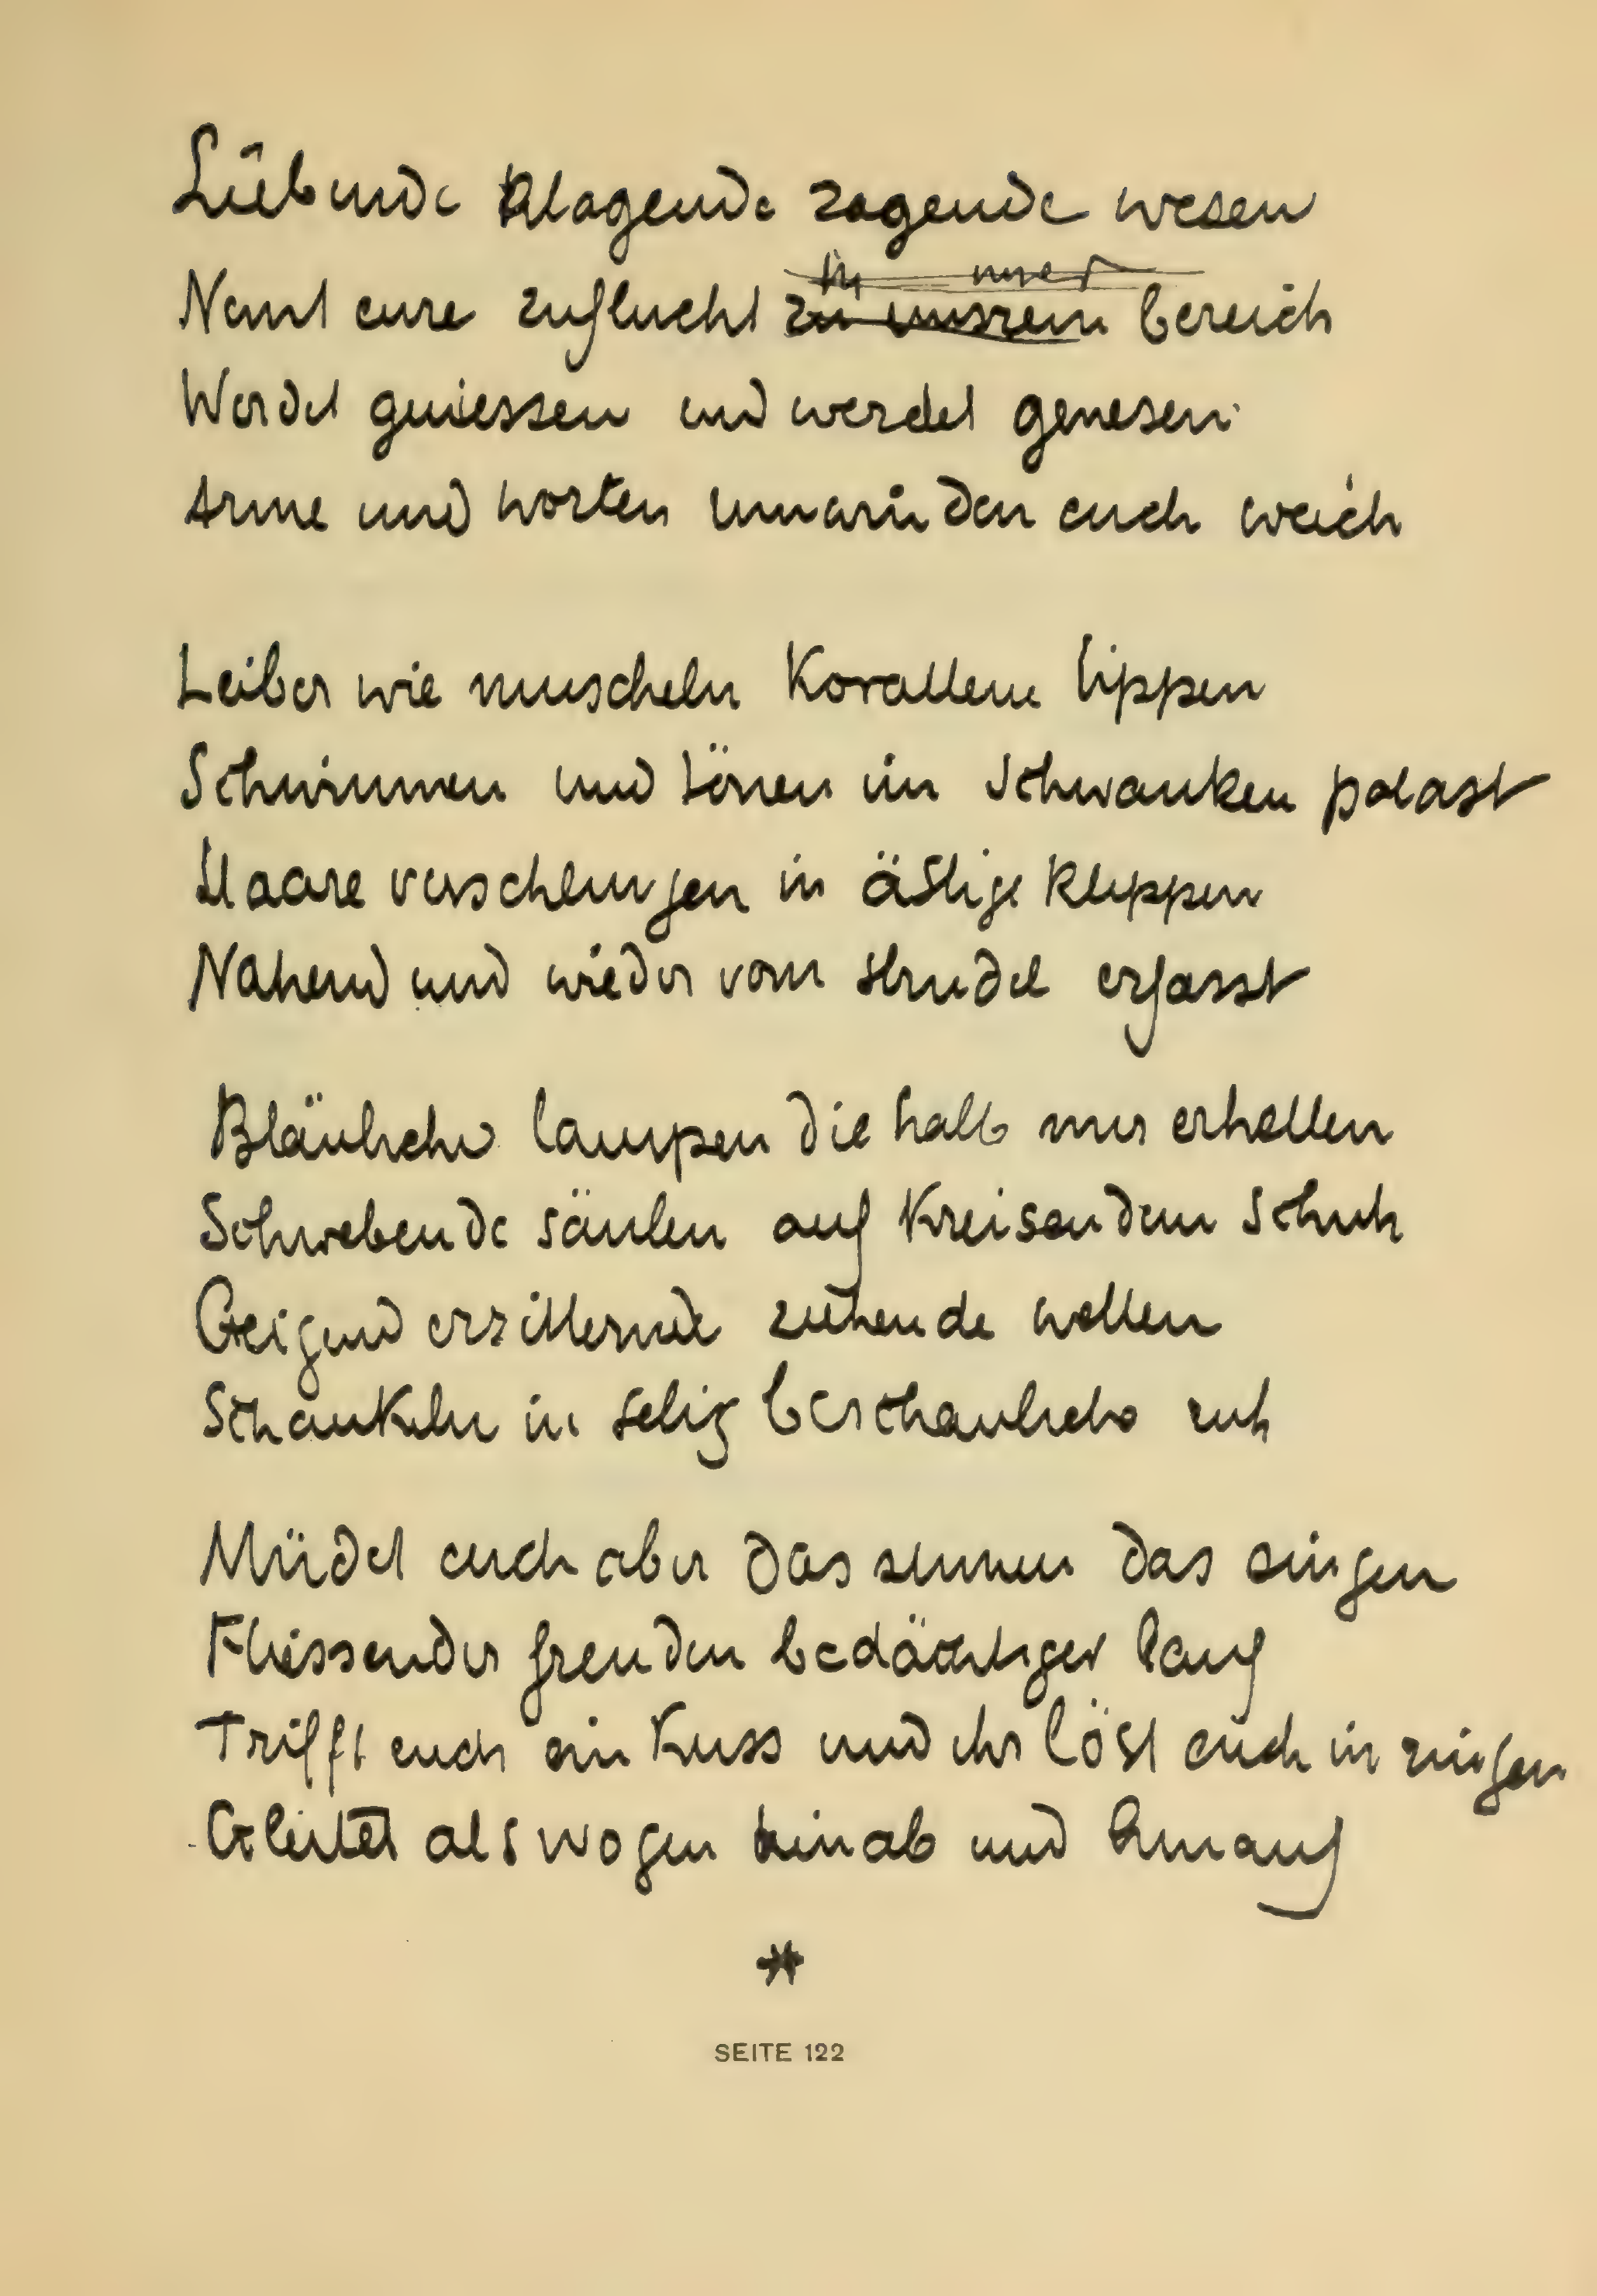 Liebende klagende zagende wesen
in unser
Nemt eure zuflucht zu unsrem bereich
Werdet geniessen und werdet genesen·
Arme und worten umwinden euch weich
Leiber wie muscheln korallene lippen
Schwimmen und tönen im schwanken palast
Haare verschlungen in ästige klippen
Nahend und wieder vom strudel erfasst
Bläuliche lampen die halb nur erhellen
Schwebende säulen auf kreisendem schuh
Geigend erzitternde ziehende wellen
Schaukeln in selig beschauliche ruh
Müdet euch aber das sinnen das singen
Fliessender freuden bedächtiger lauf
Trifft euch ein kuss und ihr löst euch in ringen
Gleitet als wogen hinab und hinauf
*
SEITE 122